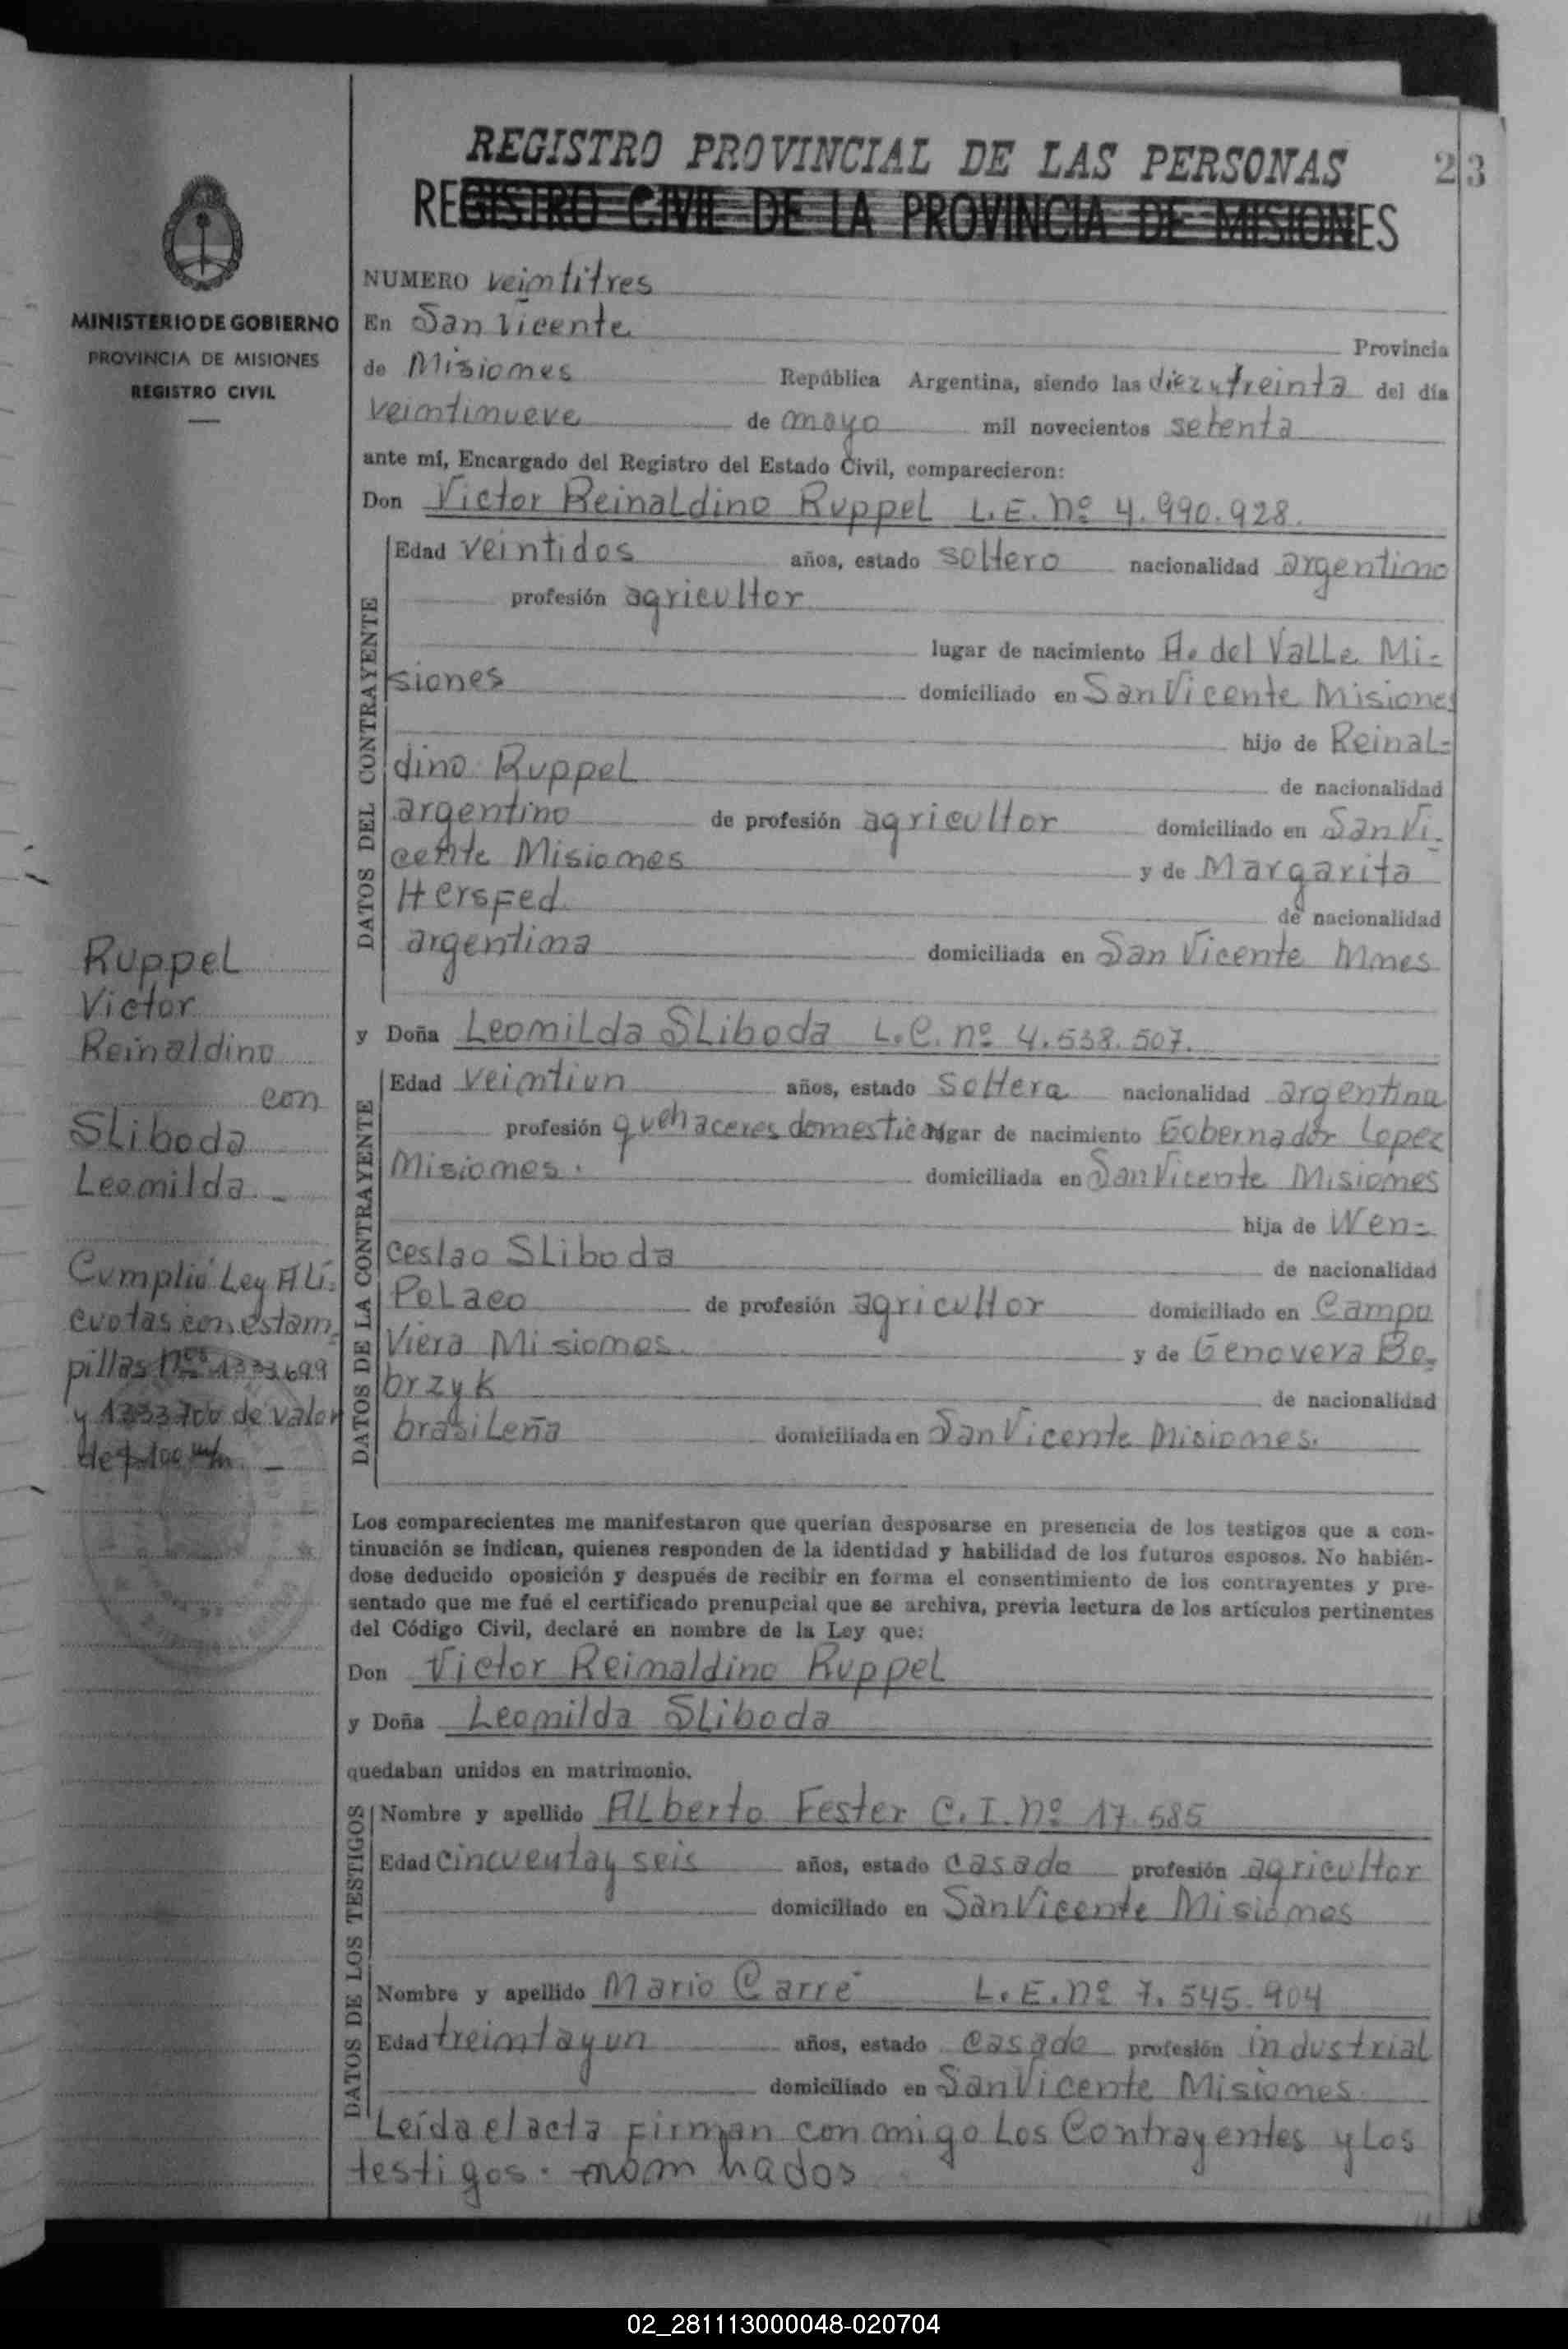 REGISTRO PROVINCIAL DE LAS PERSONAS
23
REGISTRO CIVIL DE LA PROVINCIA DE MISIONES
MINISTERIO DE GOBIERNO
PROVINCIA DE MISIONES
REGISTRO CIVIL
NUMERO veintitres
En San Vicente Provincia
de Misiones República Argentina, siendo las diez y treinta del día
veintinueve de mayo mil novecientos setenta
ante mí, Encargado del Registro del Estado Civil, comparecieron:
Don Victor Reinaldino Ruppel L.E. nº 4.990.928.
DATOS DEL CONTRAYENTE
Edad veintidos años, estado soltero nacionalidad argentino
profesión agricultor
lugar de nacimiento A. del Valle Mi-
siones domiciliado en San Vicente Misiones
hijo de Reinal-
dino Ruppel de nacionalidad
argentino de profesión agricultor domiciliado en San Vi-
cente Misiones y de Margarita
Hersfed de nacionalidad
argentina domiciliada en San Vicente Mnes
y Doña Leonilda Sliboda L.C. nº 4.538.507.
DATOS DE LA CONTRAYENTE
Edad veintiun años, estado soltera nacionalidad argentina
profesión quehaceres domestico lugar de nacimiento Gobernador Lopez
Misiones. domiciliada en San Vicente Misiones
hija de Wen-
ceslao Sliboda de nacionalidad
Polaco de profesión agricultor domiciliado en Campo
Viera Misiones. y de Genovera Bo-
brzyk de nacionalidad
brasileña domiciliada en San Vicente Misiones.
Ruppel
Victor
Reinaldino
con
Sliboda
Leonilda.-
Cumplió Ley Alí-
cuotas con estam-
pillas nos 1333699
y 1333700 de valor
de $ 100 m/n. -
Los comparecientes me manifestaron que querían desposarse en presencia de los testigos que a con-
tinuación se indican, quienes responden de la identidad y habilidad de los futuros esposos. No habién-
dose deducido oposición y después de recibir en forma el consentimiento de los contrayentes y pre-
sentado que me fué el certificado prenupcial que se archiva, previa lectura de los artículos pertinentes
del Código Civil, declaré en nombre de la Ley que:
Don Victor Reinaldino Ruppel
y Doña Leonilda Sliboda
quedaban unidos en matrimonio.
DATOS DE LOS TESTIGOS
Nombre y apellido Alberto Fester C.I. nº 17.585
Edad cincuenta y seis años, estado casado profesión agricultor
domiciliado en San Vicente Misiones
Nombre y apellido Mario Carré L.E. nº 7.545.904
Edad treinta y un años, estado casado profesión industrial
domiciliado en San Vicente Misiones.
Leída el acta firman conmigo los Contrayentes y los
testigos. nombrados
02_281113000048-020704